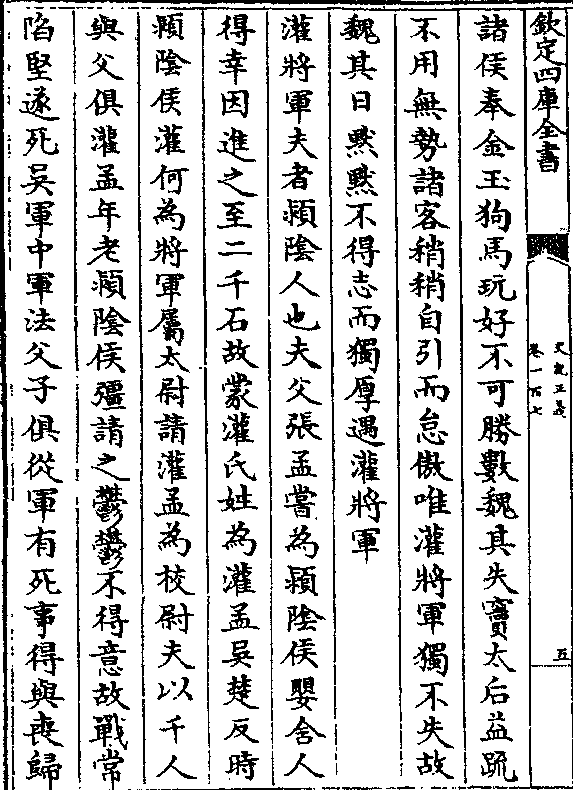 欽定四庫全書
史記正義
卷一百七
五
諸侯奉金玉狗馬玩好不可勝數魏其失竇太后益疏
不用無勢諸客稍稍自引而怠傲唯灌將軍獨不失故
魏其日黙黙不得志而獨厚遇灌將軍
灌將軍夫者潁隂人也夫父張孟嘗為潁隂侯嬰舍人
得幸因進之至二千石故蒙灌氏姓為灌孟吳楚反時
潁隂侯灌何為將軍屬太尉請灌孟為校尉夫以千人
與父俱灌孟年老潁隂侯彊請之鬱鬱不得意故戰常
陷堅遂死吳軍中軍法父子俱從軍有死事得與喪歸